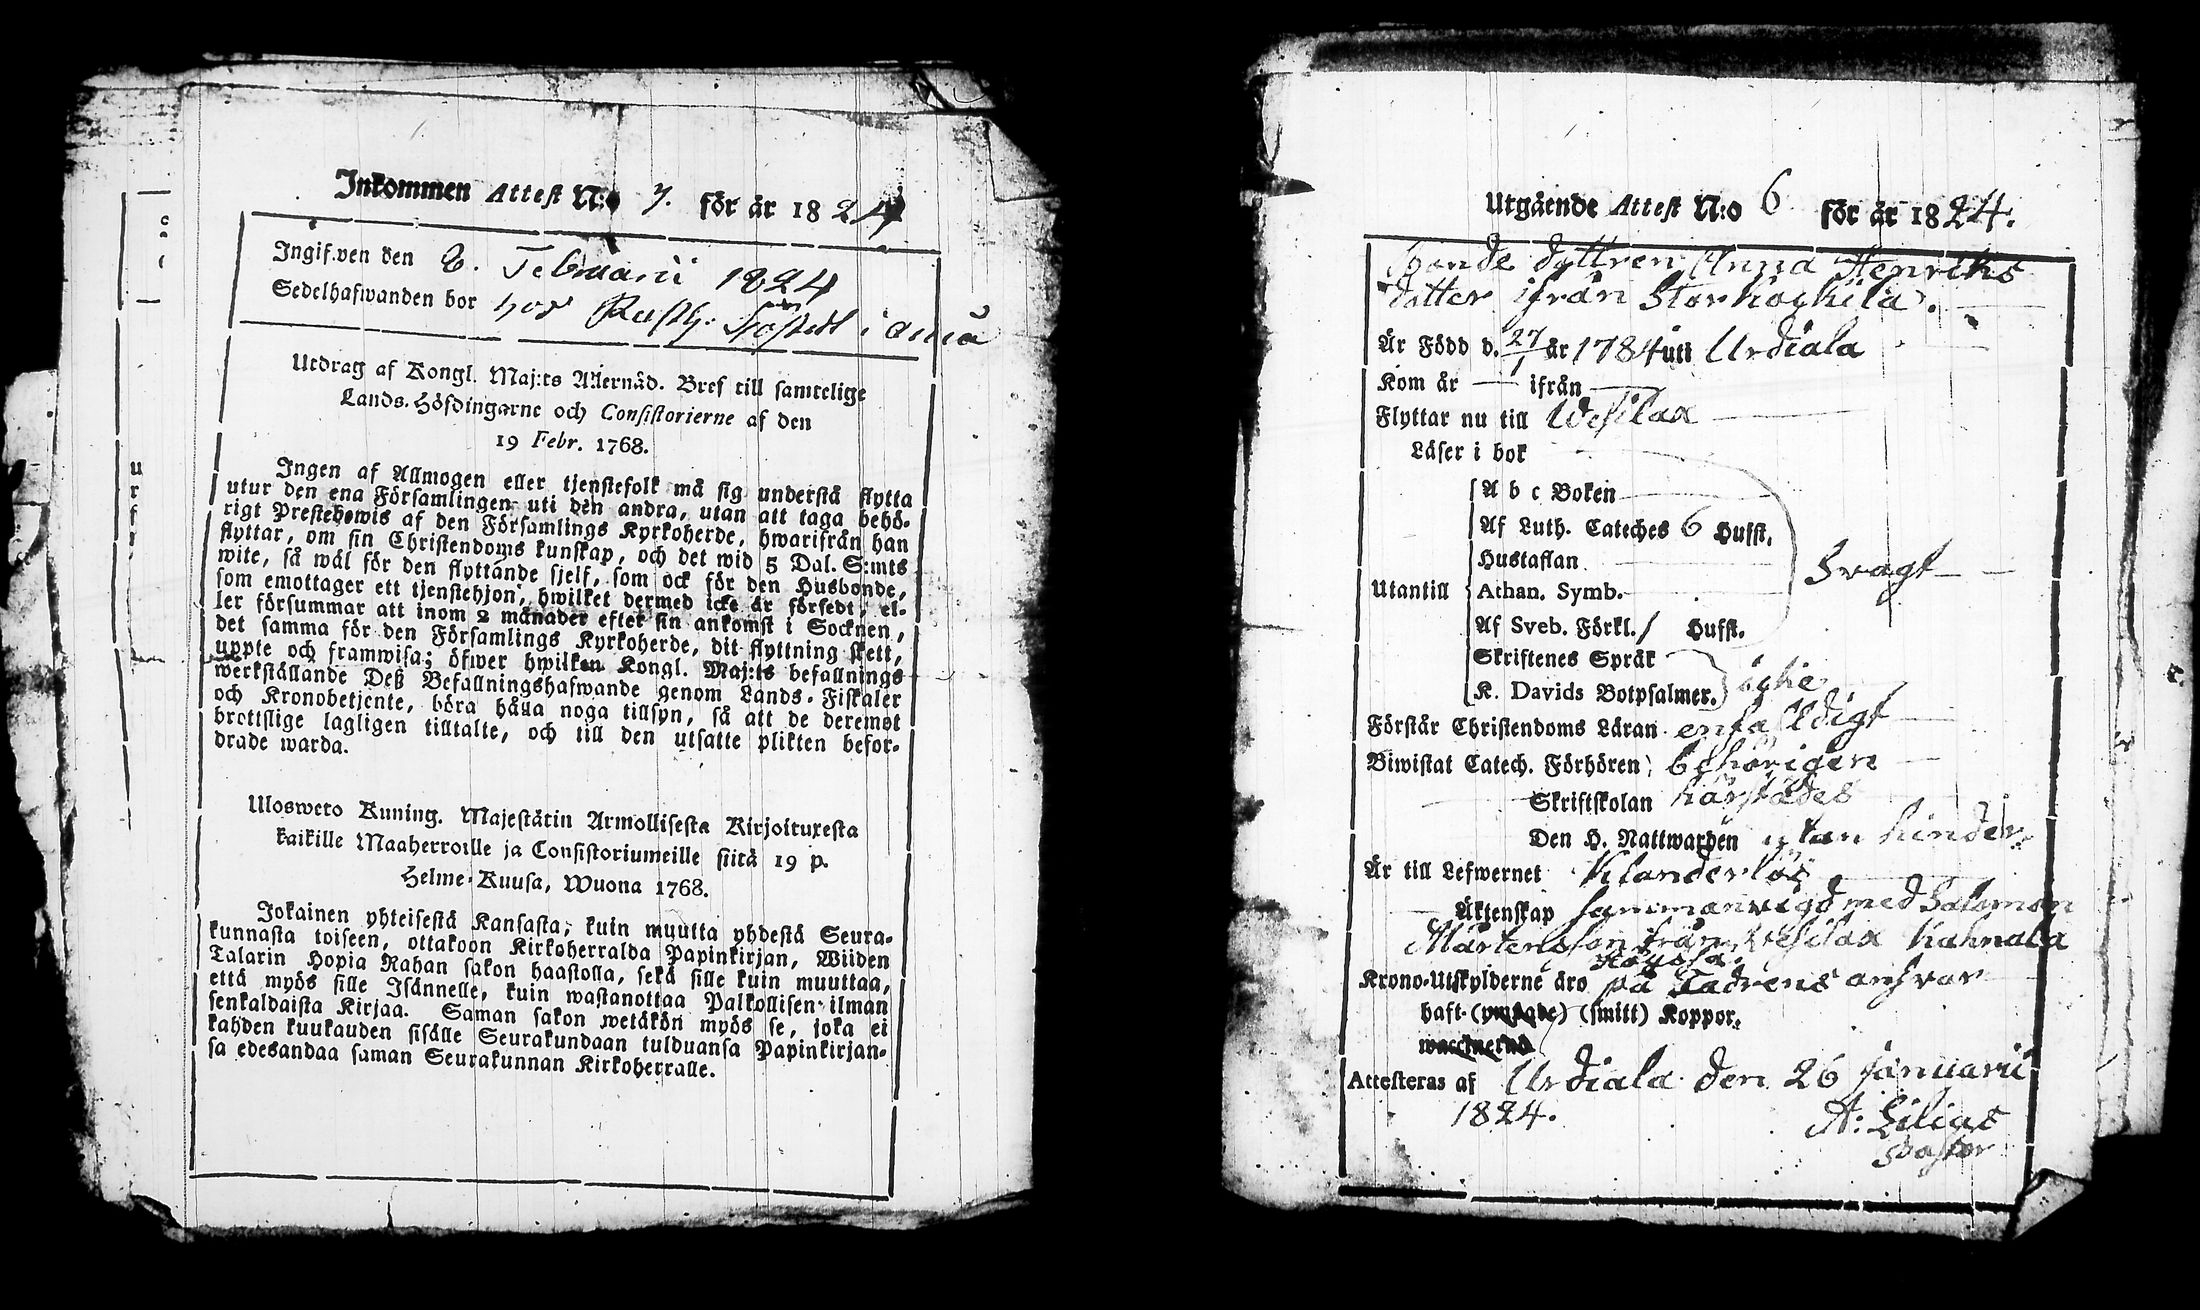 Inkommen Attest N:o 7. för år 1824
Ingifven den 8. Februarii 1824
Sedelhafwanden bor hos Rusth: i
Utdrag af Kongl. Maj:ts Allernåd. Bref till samtelige
Lands-Höfdingarne och Consistorierne af den
19 Febr. 1768.
Ingen af Allmogen eller tjenstefolk må sig understå flytta
utur den ena Församlingen uti den andra, utan att taga behö-
rigt Prestebewis af den Församlings Kyrkoherde, hwarifrån han
flyttar, om sin Christendoms kunskap, och det wid 5 Dal. S:mts
wite, så wäl för den flyttande sjelf, som ock för den Husbonde,
som emottager ett tjenstehjon, hwilket dermed icke är försedt, el-
ler försummar att inom 2 månader efter sin ankomst i Socknen,
det samma för den Församlings Kyrkoherde, dit flyttning skett,
uppte och framwisa; öfwer hwilken Kongl. Maj:ts befallnings
werkställande Deß Befallningshafwande genom Lands-Fiskaler
och Kronobetjente, böra hålla noga tillsyn, så att de deremot
brottslige lagligen tilltalte, och till den utsatte plikten befor-
drade warda.
Ulosweto Kuning. Majestätin Armollisesta Kirjoituxesta
kaikille Maaherroille ja Consistoriumeille siitä 19 p.
Helme-Kuusa, Wuona 1768.
Jokainen yhteisestä Kansasta, kuin muutta yhdestä Seura-
kunnasta toiseen, ottakoon Kirkoherralda Papinkirjan, Wiiden
Talarin Hopia Rahan sakon haastolla, sekä sille kuin muuttaa,
että myös sille Isännelle, kuin wastanottaa Palkollisen ilman
senkaldaista Kirjaa. Saman sakon wetäkön myös se, joka ei
kahden kuukauden sisälle Seurakundaan tulduansa Papinkirjan-
sa edesandaa saman Seurakunnan Kirkoherralle.
Utgående Attest N:o 6 för år 1824.
Bonde dottren Anna Henriks
dotter ifrån Storhockila.
Är Född d. 27/1 år 1784 uti Urdiala
Kom år — ifrån —
Flyttar nu till Wesilax
Läser i bok
A b c Boken
Af Luth. Cateches 6 Hufst.
Hustaflan
Utantill Athan. Symb.
Svagt
Af Sveb. Förkl. / Hufst.
Skriftenes Språk
K. Davids Botpsalmer. icke
Förstår Christendoms Läran enfalldigt
Biwistat Catech. Förhören behörigen
Skriftskolan härstädes
Den H. Nattwarden utan hinder
Är till Lefwernet Klanderlös
Äktenskap sammanvigd med Salomon
Mårtensson från Wesilax Kahnala
Krono-Utskylderne äro på Fadrens ansvar
haft (ympade) (smitt) Koppor.
waccinerad
Attesteras af Urdiala den 26 Januarii
1824.
A: Lilius
Pastor